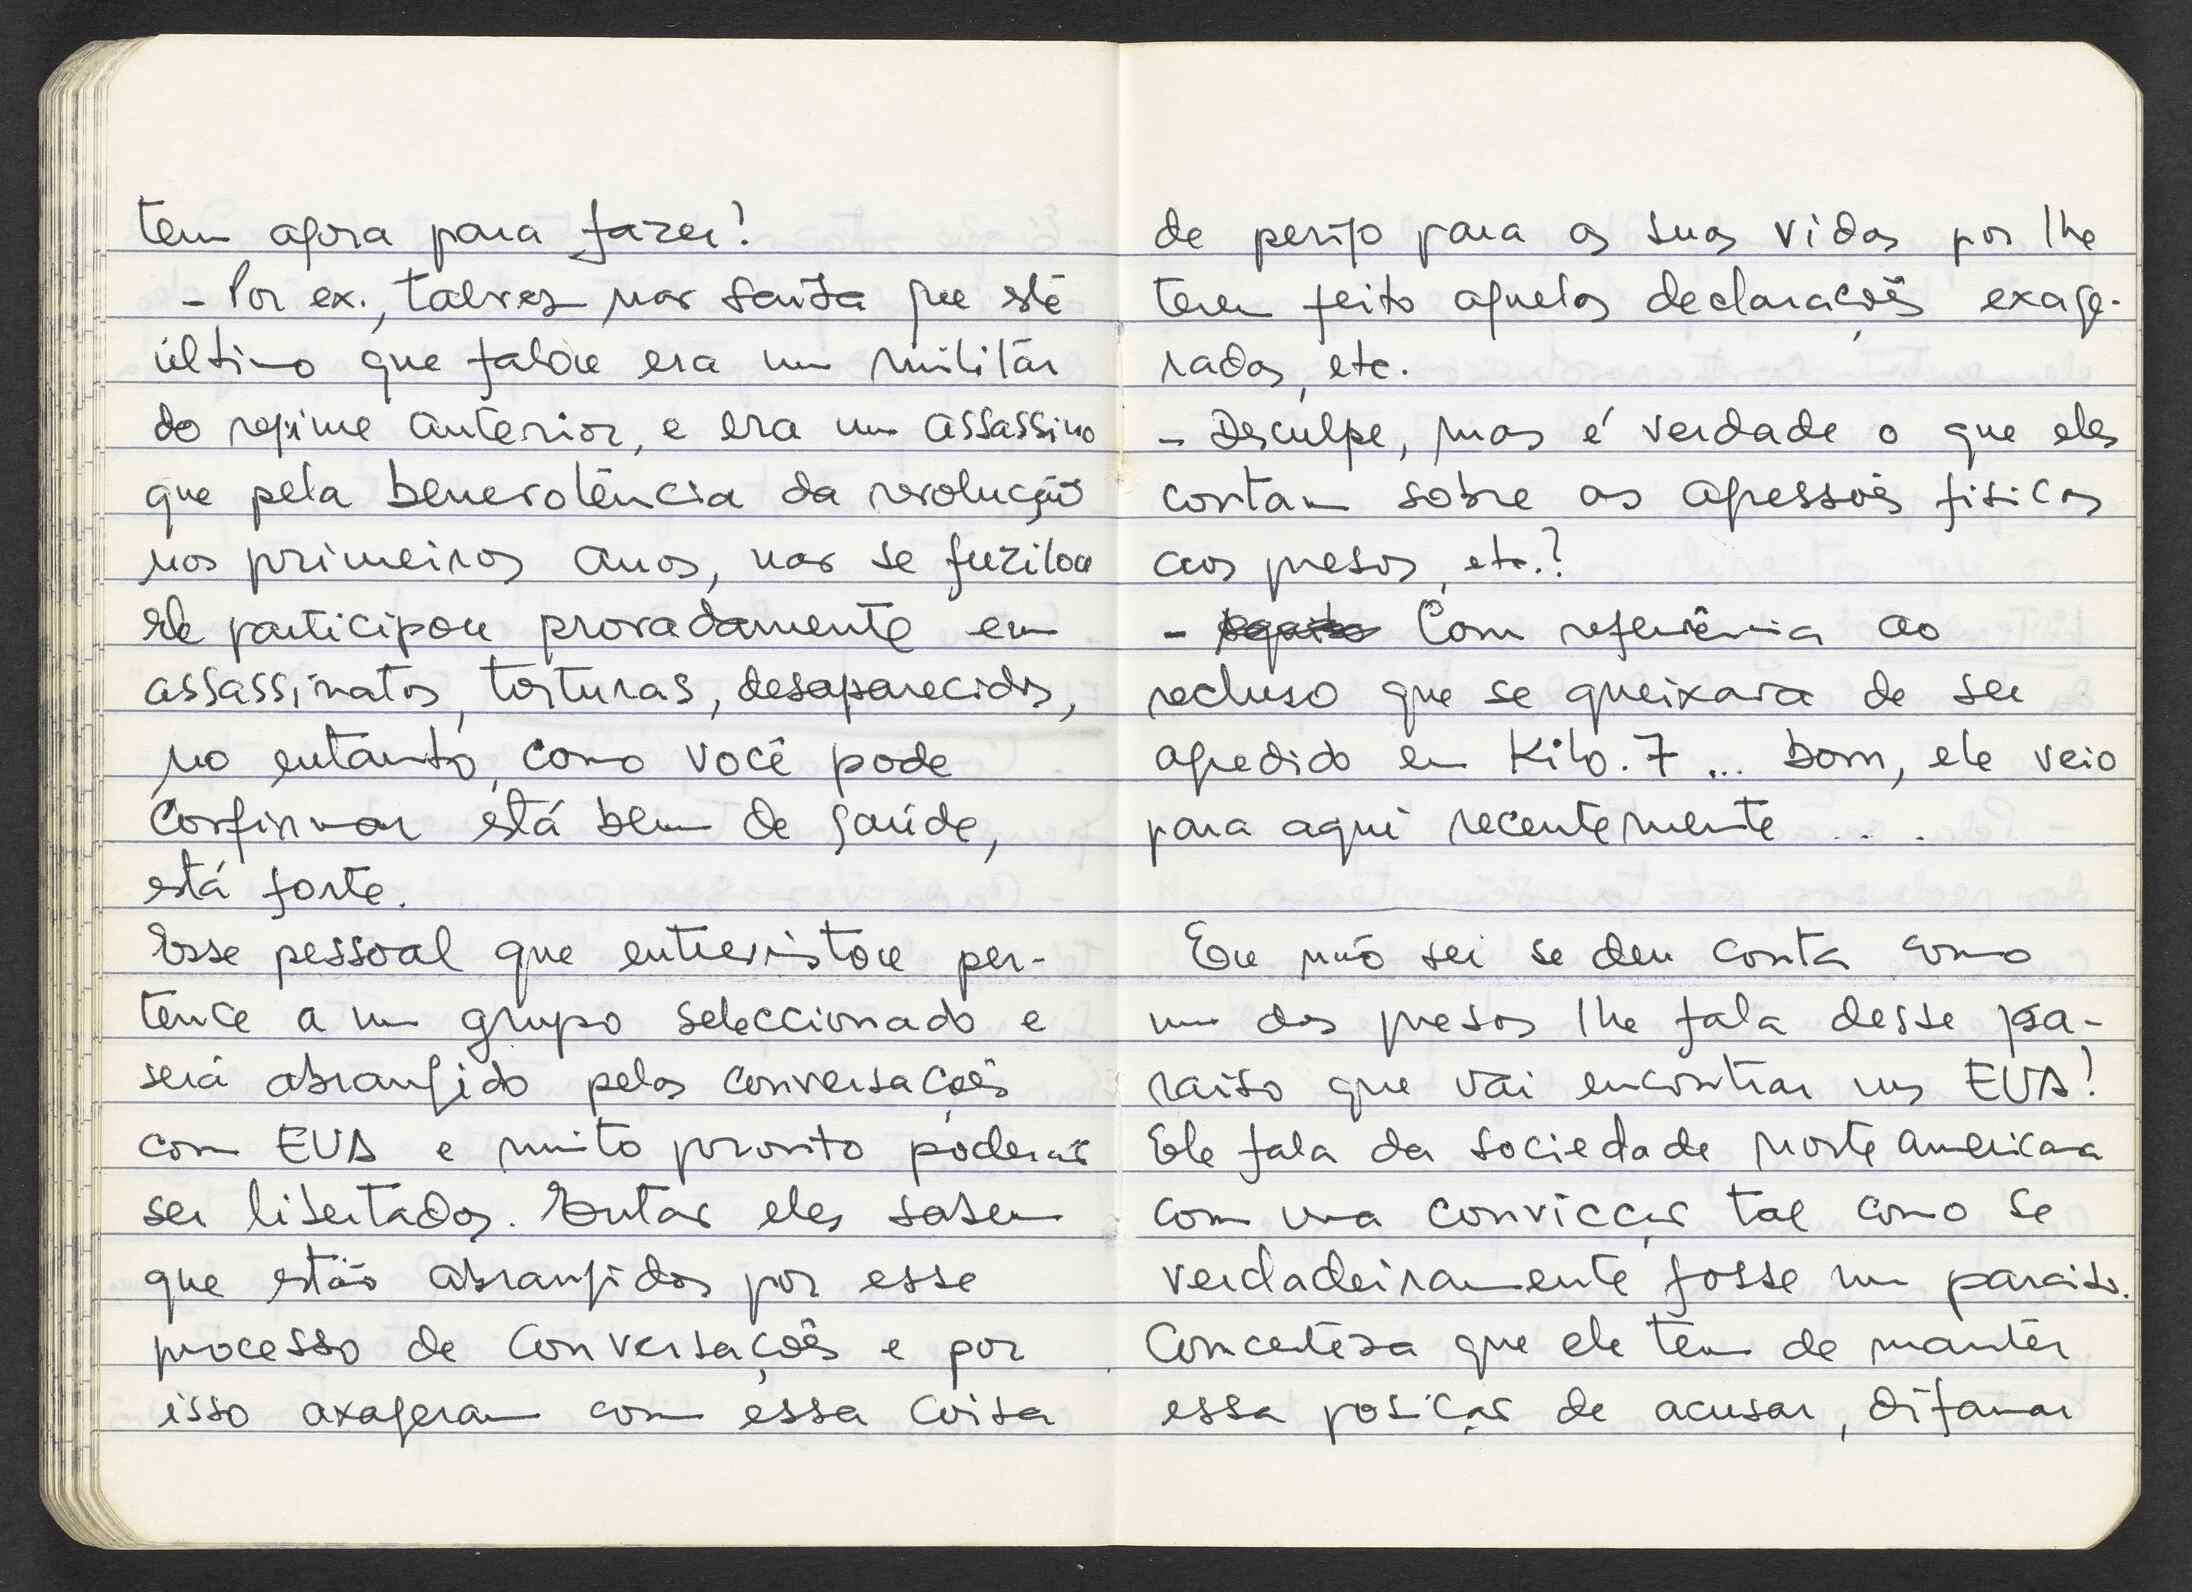 tem agora para fazer?
- Por ex., talvez não saiba que este
último que falou era um militar
do regime anterior, e era um assassino
que pela benevolência da revolução
nos primeiros anos, não se fuzilou
Ele participou provadamente em
assassinatos, torturas, desaparecidos,
no entanto, como você pode
confirmar está bem de saúde,
está forte.
Esse pessoal que entrevistou per-
tence a um grupo seleccionado e
será abrangido pelas conversações
com EUA e muito pronto poderão
ser libertados. Então eles sabem
que estão abrangidos por esse
processo de conversações e por
isso axageram com essa coisa
de perigo para as suas vidas por lhe
terem feito aquelas declarações exage-
radas, etc.
- Desculpe, mas é verdade o que eles
contam sobre as agressões fisicas
aos presos, etc.?
- Com referência ao
recluso que se queixara de ser
agredido em Kilo. 7 ... bom, ele veio
para aqui recentemente . . .
Eu não sei se deu conta como
um dos presos lhe fala desse pa-
raiso que vai encontrar nos EUA!
Ele fala da sociedade norte americana
com uma convicção tal como se
verdadeiramente fosse um paraiso.
Concerteza que ele tem de manter
essa posição de acusar, difamar